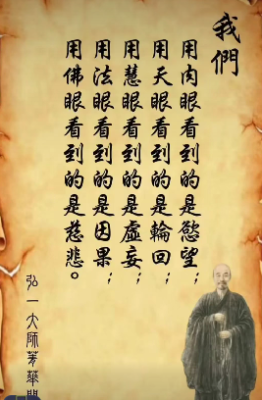 我們
用肉眼看到的是慾望；
用天眼看到的是輪回；
用慧眼看到的是虛妄；
用法眼看到的是因果；
用佛眼看到的是慈悲。
弘一大師